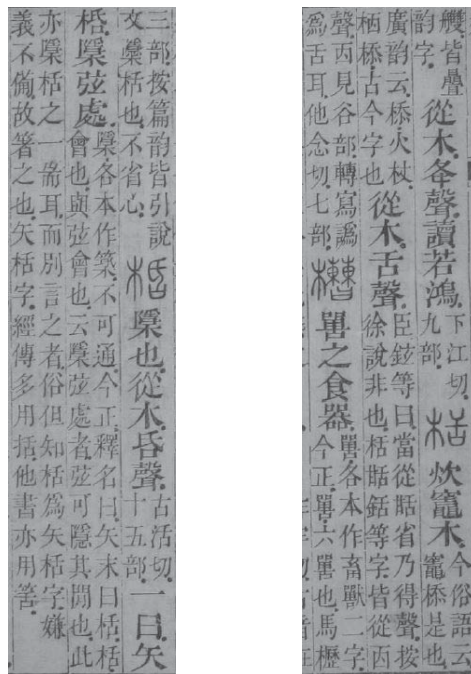 艭皆曡韵字。從木夅聲。讀若鴻。下江切。九部。栝 炊竈木。今俗語云竈㮇是也。
廣韵云。㮇、火杖。栖㮇古今字也。從木舌聲。臣鉉等曰。當從𦧇省乃得聲。按徐說非也。栝𦧇銛等字皆從㐁
聲。㐁見谷部。轉寫譌爲舌耳。他念切。七部。槽 嘼之食器。嘼各本作畜獸二字。今正。嘼、六嘼也。馬櫪
三部。按篇韵皆引說文檃栝也。不省心。桰 檃也。從木昏聲。古活切。十五部。一曰矢
桰。檃弦處。檃各本作築。不可通。今正。釋名曰。矢末曰栝。栝、會也。與弦會也。云檃弦處者。弦可隱其閒也。此
亦檃栝之一耑耳。而別言之者。俗但知栝爲矢栝字。嫌義不僃。故箸之也。矢栝字經傳多用括。他書亦用筈。